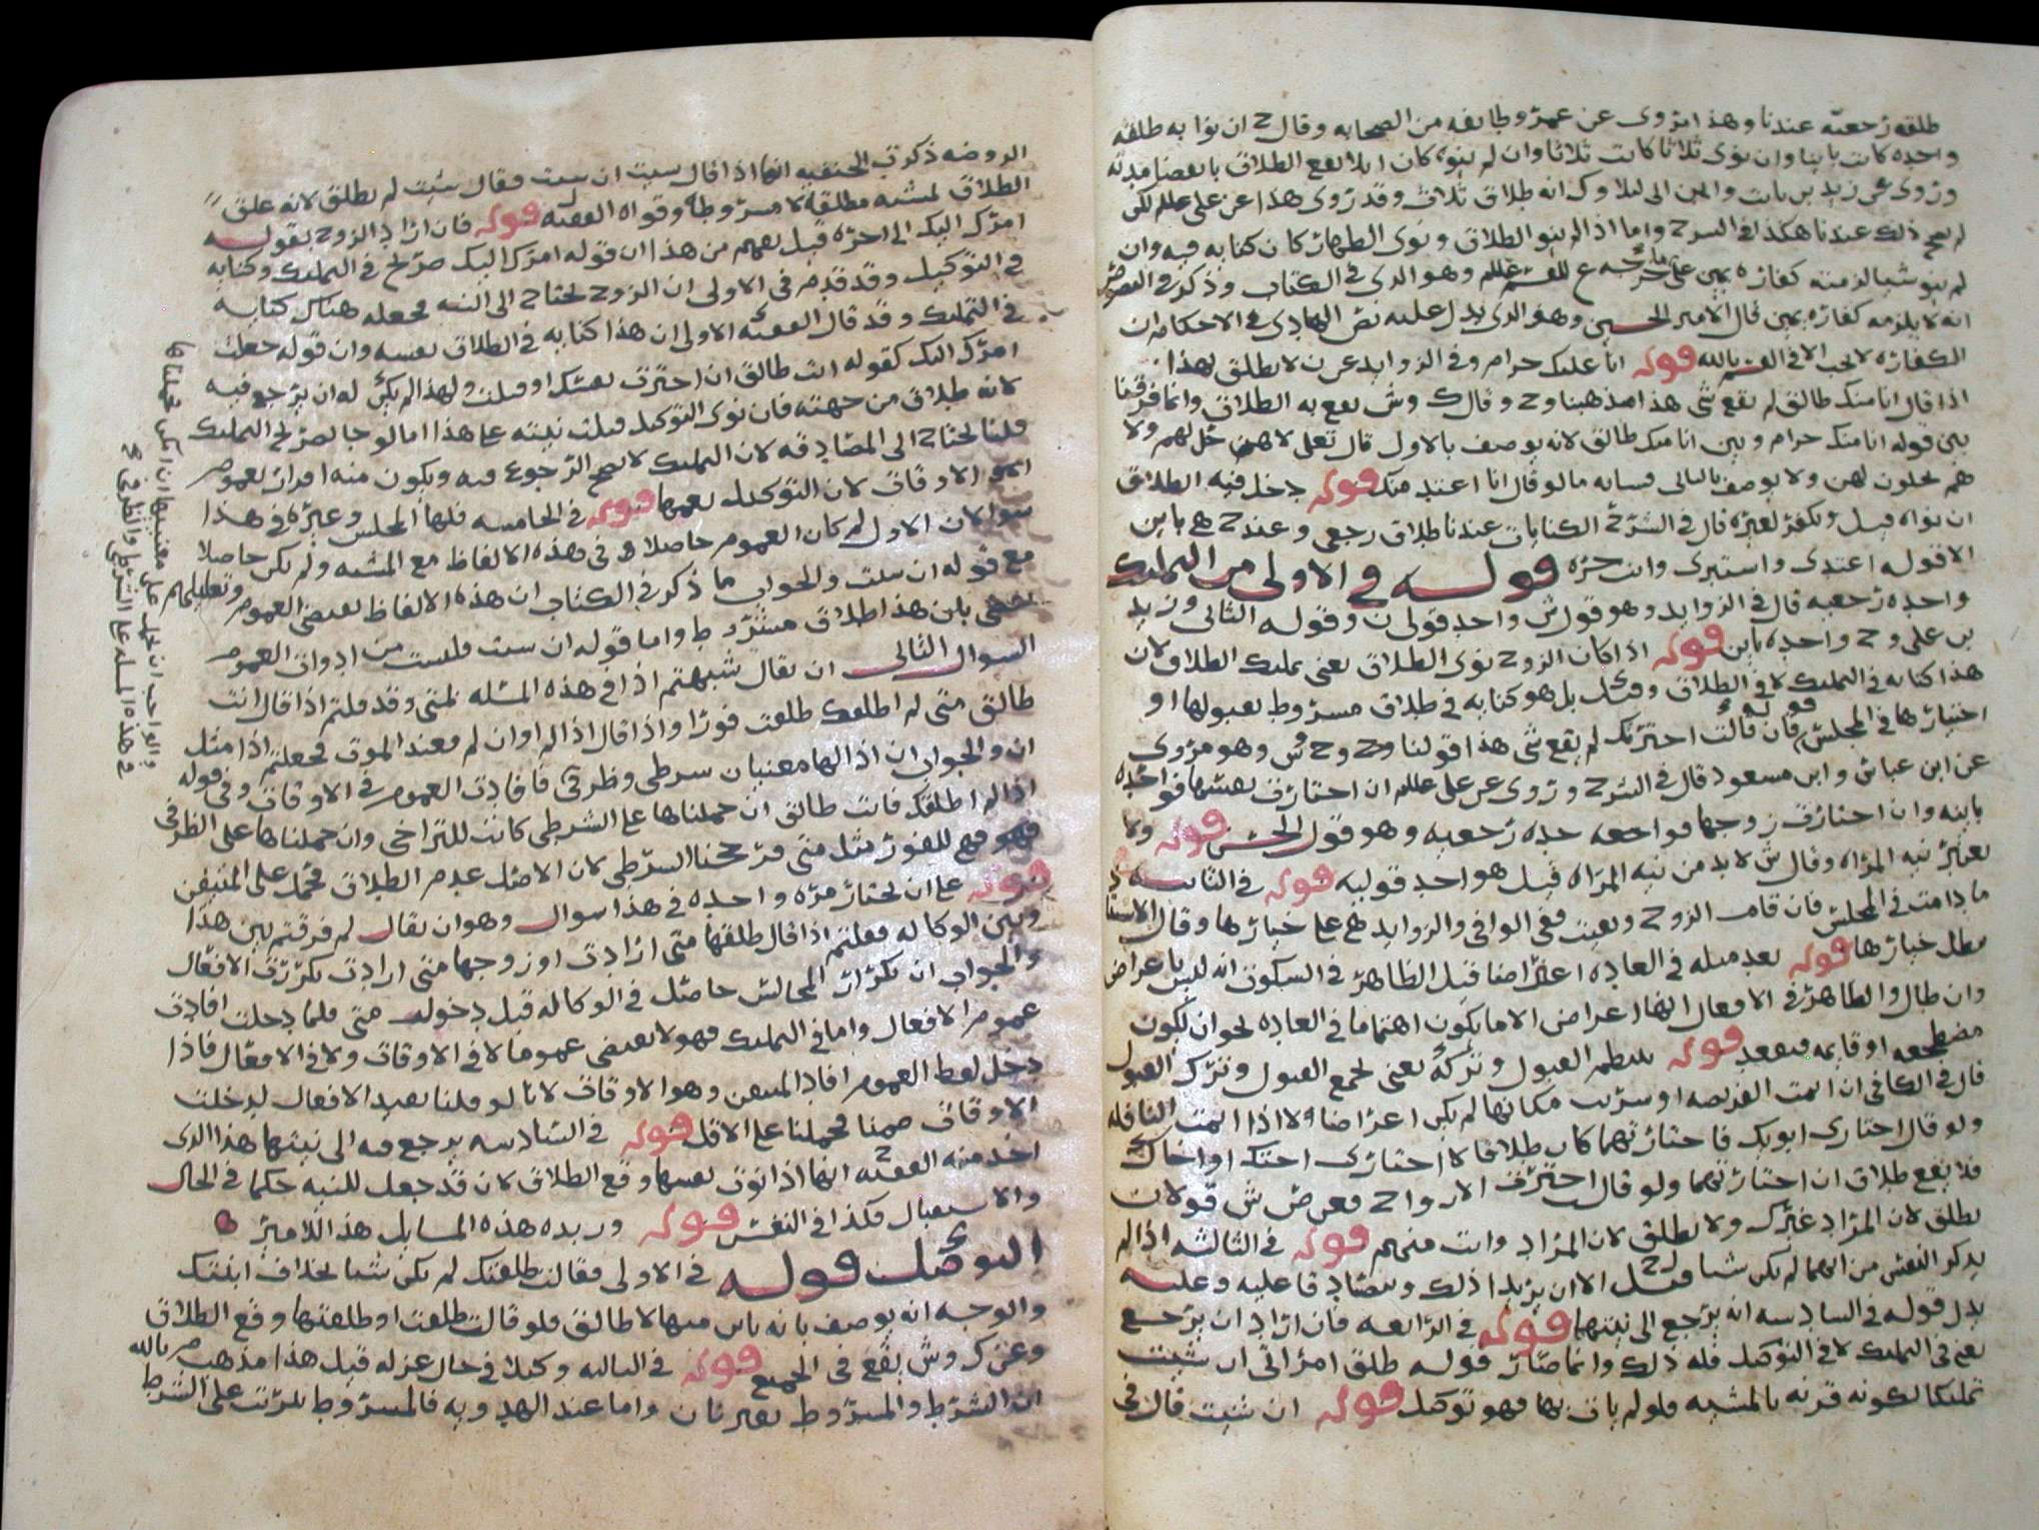 طلقه رجعيه عندنا وهذا مروى عن عمر وطايفه من الصحابه وقال ح ان نوا به طلقه
واحده كانت باينا وان نوى ثلاثا كانت ثلاثا وان لم ينو كان ايلا يقع الطلاق بانقضا مدته
وروى عن زيد بن ثابت وابن ابى ليلا وك انه طلاق ثلاث وقد روى هذا عن على علم لكن
لم يصح ذلك عندنا هكذا فى الشرح واما اذا لم ينو الطلاق ونوى الظهار كان كنايه فيه وان
لم ينو شيا لزمته كفاره يمين وهو الذى فى الكتاب وذكر فى
انه لا يلزمه كفاره يمين قال الامير الحسين وهو الذى يدل عليه نص الهادى فى الاحكام ان
الكفاره لا تجب الا فى القسم بالله قوله انا عليك حرام وفى الزوايد عن ن لا يطلق بهذا
اذا قال انا منك طالق لم يقع شى هذا مذهبنا وح وقال ك وش يقع به الطلاق وانما فرقنا
بين قوله انا منك حرام وبين انا منك طالق لانه يوصف بالاول قال تعلى لا هن حل لهم ولا
هم يحلون لهن ولا يوصف بالثانى مسله ما لو قال انا اعتد منك قوله دخل فيه الطلاق
ان نواه قيل ويكفر لغيره قال فى الشرح الكنايات عندنا طلاق رجعى وعند ح هى باين
الا قوله اعتدى واستبرى وانت حره قوله فى الاولى من التمليك
واحده رجعيه قال فى الزوايد وهو قول ش واحد قولى ن وقوله الثانى وزيد
بن على وح واحده باين قوله اذا كان الزوج نوى الطلاق يعنى تمليك الطلاق لان
هذا كنايه فى التمليك لا فى الطلاق وقيل بل هو كنايه فى طلاق مشروط بقبولها او
اختيارها فى المجلس قوله فان قالت اخترتك لم يقع شى هذا قولنا وح وش وهو مروى
عن ابن عباس وابن مسعود قال فى الشرح وروى عن على علم ان اختارت نفسها فواحده
باينه وان اختارت زوجها فواحده رجعيه وهو قول الحسن قوله ولا
يعتبر نيه المراه وقال ش لا بد من نيه المراه قيل هو احد قوليه قوله فى الثانيه
ما دامت فى المجلس فان قام الزوج وبقيت ففى الوافى والزوايد هى على خيارها وقال
بطل خيارها قوله بعد مثله فى العاده اعراضا قيل الظاهر فى السكوت انه ليس باعراض
وان طال والظاهر فى الافعال انها اعراض الا ما يكون اهتماما فى العاده نحو ان تكون
مضطجعه او قايمه فتقعد قوله ينتظم القبول وتركه يعنى لجمع القبول وترك القبول
قال فى الكافى ان اتمت الفريضه او سربت مكانها لم يكن اعراضا لا اذا اتمت النافله
ولو قال اختارى ابويك فاختارتهما كان طلاقا لا اختارى اختك او اخاك
فلا يقع طلاق ان اختارتهما ولو قال اخترت الازواج فعن ص ش قولان
يطلق لان المراد غيرك ولا يطلق لان المراد وانت منهم قوله فى الثالثه اذا لم
يذكر النفس من ايهما لم يكن شيا قيل الا ان يريدا ذلك ويتصادقا عليه وعليه
يدل قوله فى السادسه انه يرجع الى نيتها قوله فى الرابعه فان اراد ان يرجع
يعنى فى التمليك لا فى التوكيل فله ذلك وانما صار قوله طلق امراتى ان شيت
تمليكا لكونه قرنه بالمشيه فلو لم يات بها فهو توكيل قوله ان شيت قال فى
الروضه ذكرت الحنفيه انها اذا قال شيت ان شيت فقال شيت لم يطلق لانه علق
الطلاق بمشيه مطلقه لا مشروطه وقواه الفقيه قوله فان اراد الزوج بقوله
امرك اليك الى اخره قيل يفهم من هذا ان قوله امرك اليك صريح فى التمليك وكنايه
فى التوكيل وقد قدم فى الاولى ان الزوج يحتاج الى النيه فجعله هناك كنايه
فى التمليك وقد قال الفقيه الاولى ان هذا كنايه فى الطلاق نفسه وان قوله جعلت
امرك اليك كقوله انت طالق ان اخترت نفسك او قبلت ولهذا لم يكن له ان يرجع فيه
لانه طلاق من جهته فان نوى التوكيل قبلت نيته على هذا اما لو جا بصريح التمليك
قلنا يحتاج الى المصادقه لان التمليك لا يصح الرجوع فيه ويكون منه افراد بعموم
الاوقات لان التوكيل يعمها قوله فى الخامسه فلها المجلس وغيره فى هذا
سوالان الاول لم كان العموم حاصلا فى هذه الالفاظ مع المشيه ولم يكن حاصلا
مع قوله ان شيت والجواب ما ذكر فى الكتاب ان هذه الالفاظ تقتضى العموم وتعليلهم
بان هذا طلاق مشروط واما قوله ان شيت فليست من ادوات العموم
السوال الثانى ان يقال شبهتم اذا فى هذه المسله بمتى وقد قلتم اذا قال انت
طالق متى لم اطلقك طلقت فورا واذا قال اذا لم او ان لم فعند الموت فجعلتم اذا مثل
ان والجواب ان اذا لها معنيان شرطى وظرفى فافادت العموم فى الاوقات وفى قوله
اذا لم اطلقك فانت طالق ان حملناها على الشرطى كانت للتراخى وان حملناها على الظرفى
فهى للفور مثل متى فرجحنا الشرطى لان الاصل عدم الطلاق فحمل على المتيقن
قوله على ان تختار مره واحده فى هذا سوال وهو ان يقال لم فرقتم بين هذا
وبين الوكاله فقلتم اذا قال طلقها متى ارادت او زوجها متى ارادت تكررت الافعال
والجواب ان تكرار المجالس حاصل فى الوكاله قبل دخول متى فلما دخلت افادت
عموم الافعال واما فى التمليك فهو لا يقتضى عموما لا فى الاوقات ولا فى الافعال فاذا
دخل لفظ العموم افاد المتيقن وهو الاوقات لانا لو قلنا يفيد الافعال لدخلت
الاوقات ضمنا فحملنا على الاقل قوله فى السادسه يرجع فيه الى نيتها هذا الذى
اخذ منه الفقيه انها اذا نوت نفسها وقع الطلاق لانه قد جعل للنيه حكما فى الحال
والاستقبال فكذا فى النفس قوله وزبده هذه المسايل هذا للامير
التوكيل قوله فى الاولى فقالت طلقتك لم يكن شيا بخلاف ابنتك
والوجه انه يوصف بانه باين منها لا طالق فلو قالت طلقت او طلقتها وقع الطلاق
وعن ك وش يقع فى الجميع قوله فى الثالثه وكيلا فى حال عزله قيل هذا مذهب م بالله
ان الشرط والمشروط يعتبران واما عند الهدويه فالمشروط يترتب على الشرط
والواجب ان تحمل على معنييها ان امكن فحملناها
فى هذه المسله على الشرط والظرف